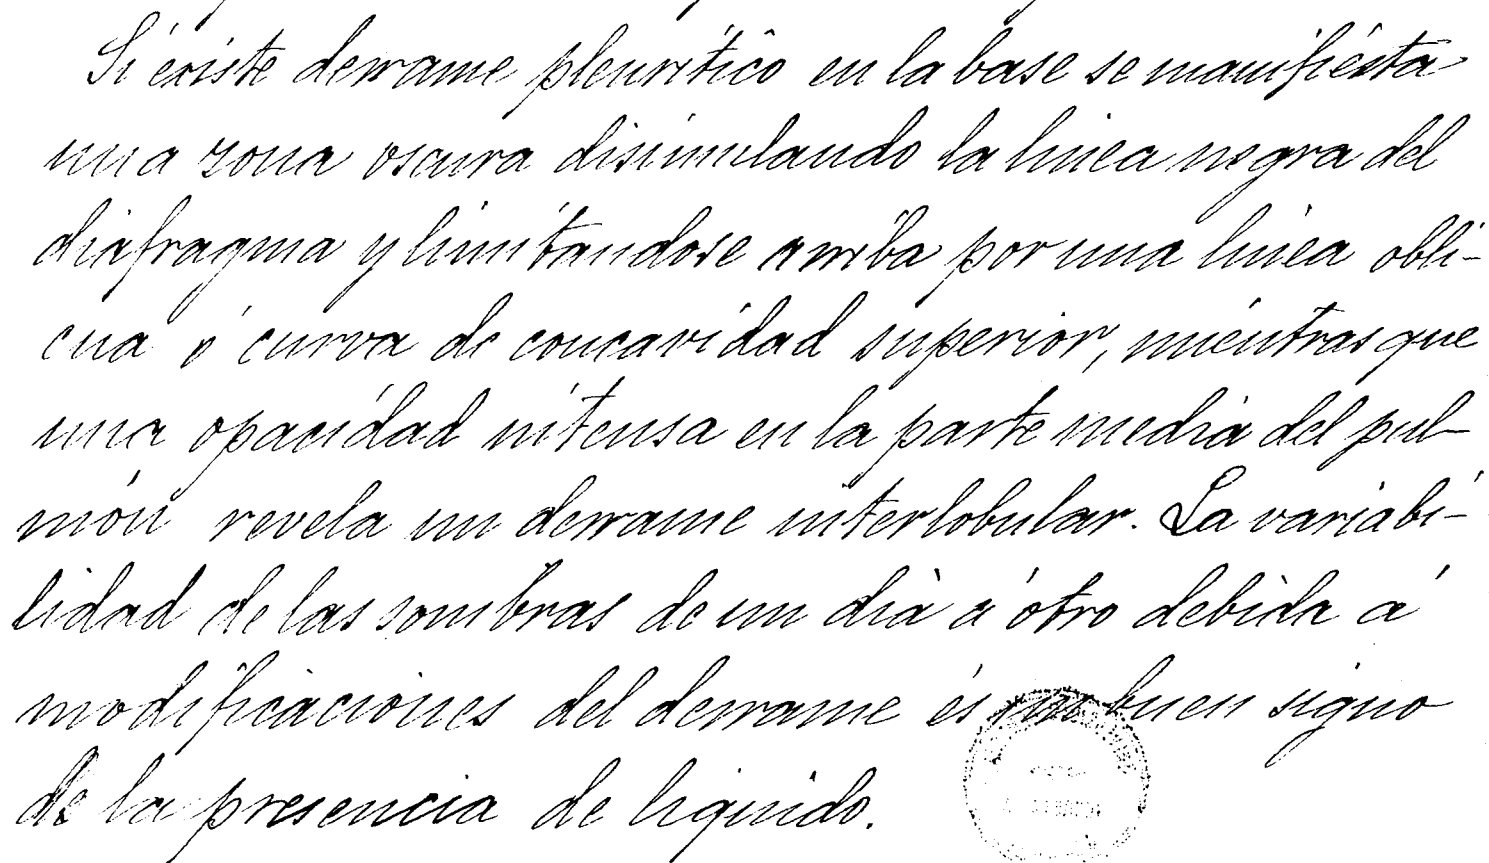 Si existe derrame pleuritico en la base se manifiesta
una zona oscura disimulando la linea negra del
diafragma y limitandose arriba por una linea obli-
cua ó curva de concavidad superior, mientras que
una opacidad intensa en la parte media del pul-
món revela un derrame interlobular. La variabi-
lidad de las sombras de un dia á otro debida á
modificaciones del derrame és un buen signo
de la presencia de liquido.